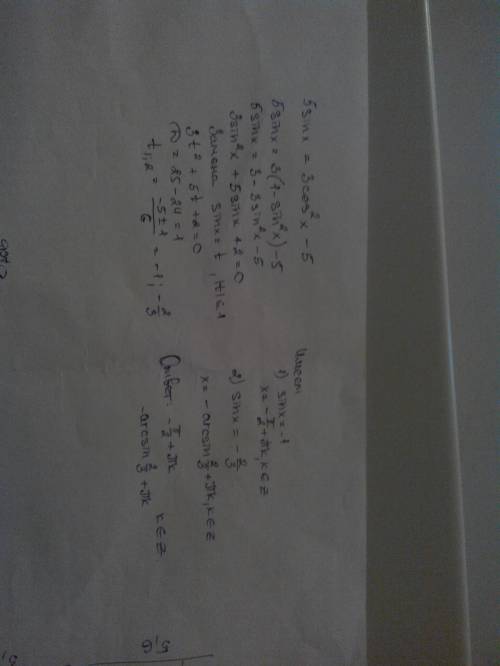 5sinx = 3cos²x - 5
5sinx = 3(1-sin²x) - 5
5sinx = 3 - 3sin²x - 5
3sin²x + 5sinx + 2 = 0
Замена sinx = t, |t| ≤ 1
3t² + 5t + 2 = 0
D = 25 - 24 = 1
t₁,₂ = (-5 ± 1)/6 = -1; -2/3
Имеем
1) sinx = -1
x = -π/2 + πk, k ∈ Z
2) sinx = -2/3
x = -arcsin 2/3 + πk, k ∈ Z
Ответ: -π/2 + πk
-arcsin 2/3 + πk k ∈ Z